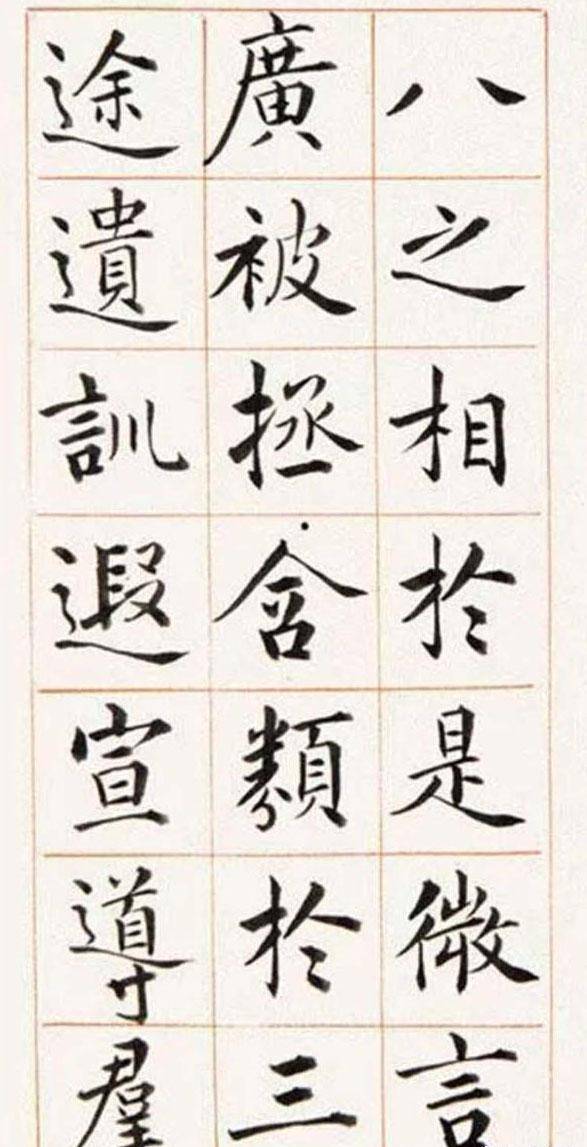 八之相於是微言
廣被拯含類於三
途遺訓遐宣導羣